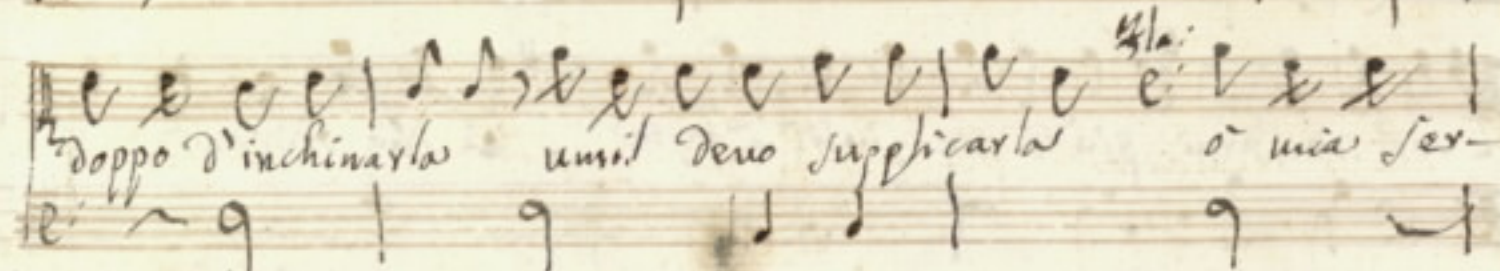 Fla:
doppo d'inchinarla umil devo supplicarla ò mia ser-